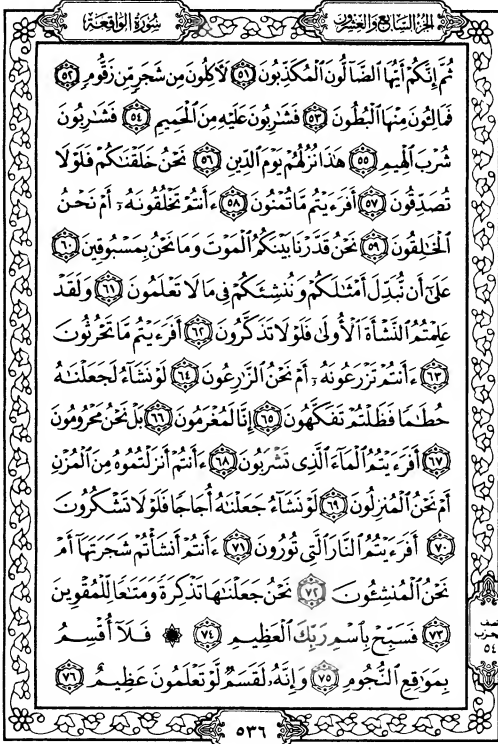 الجزء السابع والعشرون
سورة الواقعة
ثُمَّ إِنَّكُمْ أَيُّهَا ٱلضَّآلُّونَ ٱلْمُكَذِّبُونَ ۝٥١ لَأٓكِلُونَ مِن شَجَرٍ مِّن زَقُّومٍ ۝٥٢
فَمَالِـُٔونَ مِنْهَا ٱلْبُطُونَ ۝٥٣ فَشَٰرِبُونَ عَلَيْهِ مِنَ ٱلْحَمِيمِ ۝٥٤ فَشَٰرِبُونَ
شُرْبَ ٱلْهِيمِ ۝٥٥ هَٰذَا نُزُلُهُمْ يَوْمَ ٱلدِّينِ ۝٥٦ نَحْنُ خَلَقْنَٰكُمْ فَلَوْلَا
تُصَدِّقُونَ ۝٥٧ أَفَرَءَيْتُم مَّا تُمْنُونَ ۝٥٨ ءَأَنتُمْ تَخْلُقُونَهُۥٓ أَمْ نَحْنُ
ٱلْخَٰلِقُونَ ۝٥٩ نَحْنُ قَدَّرْنَا بَيْنَكُمُ ٱلْمَوْتَ وَمَا نَحْنُ بِمَسْبُوقِينَ ۝٦٠
عَلَىٰٓ أَن نُّبَدِّلَ أَمْثَٰلَكُمْ وَنُنشِئَكُمْ فِى مَا لَا تَعْلَمُونَ ۝٦١ وَلَقَدْ
عَلِمْتُمُ ٱلنَّشْأَةَ ٱلْأُولَىٰ فَلَوْلَا تَذَكَّرُونَ ۝٦٢ أَفَرَءَيْتُم مَّا تَحْرُثُونَ
۝٦٣ ءَأَنتُمْ تَزْرَعُونَهُۥٓ أَمْ نَحْنُ ٱلزَّٰرِعُونَ ۝٦٤ لَوْ نَشَآءُ لَجَعَلْنَٰهُ
حُطَٰمًا فَظَلْتُمْ تَفَكَّهُونَ ۝٦٥ إِنَّا لَمُغْرَمُونَ ۝٦٦ بَلْ نَحْنُ مَحْرُومُونَ
۝٦٧ أَفَرَءَيْتُمُ ٱلْمَآءَ ٱلَّذِى تَشْرَبُونَ ۝٦٨ ءَأَنتُمْ أَنزَلْتُمُوهُ مِنَ ٱلْمُزْنِ
أَمْ نَحْنُ ٱلْمُنزِلُونَ ۝٦٩ لَوْ نَشَآءُ جَعَلْنَٰهُ أُجَاجًا فَلَوْلَا تَشْكُرُونَ
۝٧٠ أَفَرَءَيْتُمُ ٱلنَّارَ ٱلَّتِى تُورُونَ ۝٧١ ءَأَنتُمْ أَنشَأْتُمْ شَجَرَتَهَآ أَمْ
نَحْنُ ٱلْمُنشِـُٔونَ ۝٧٢ نَحْنُ جَعَلْنَٰهَا تَذْكِرَةً وَمَتَٰعًا لِّلْمُقْوِينَ
۝٧٣ فَسَبِّحْ بِٱسْمِ رَبِّكَ ٱلْعَظِيمِ ۝٧٤ ۞ فَلَآ أُقْسِمُ
بِمَوَٰقِعِ ٱلنُّجُومِ ۝٧٥ وَإِنَّهُۥ لَقَسَمٌ لَّوْ تَعْلَمُونَ عَظِيمٌ ۝٧٦
نصف
الحزب
٥٤
٥٣٦